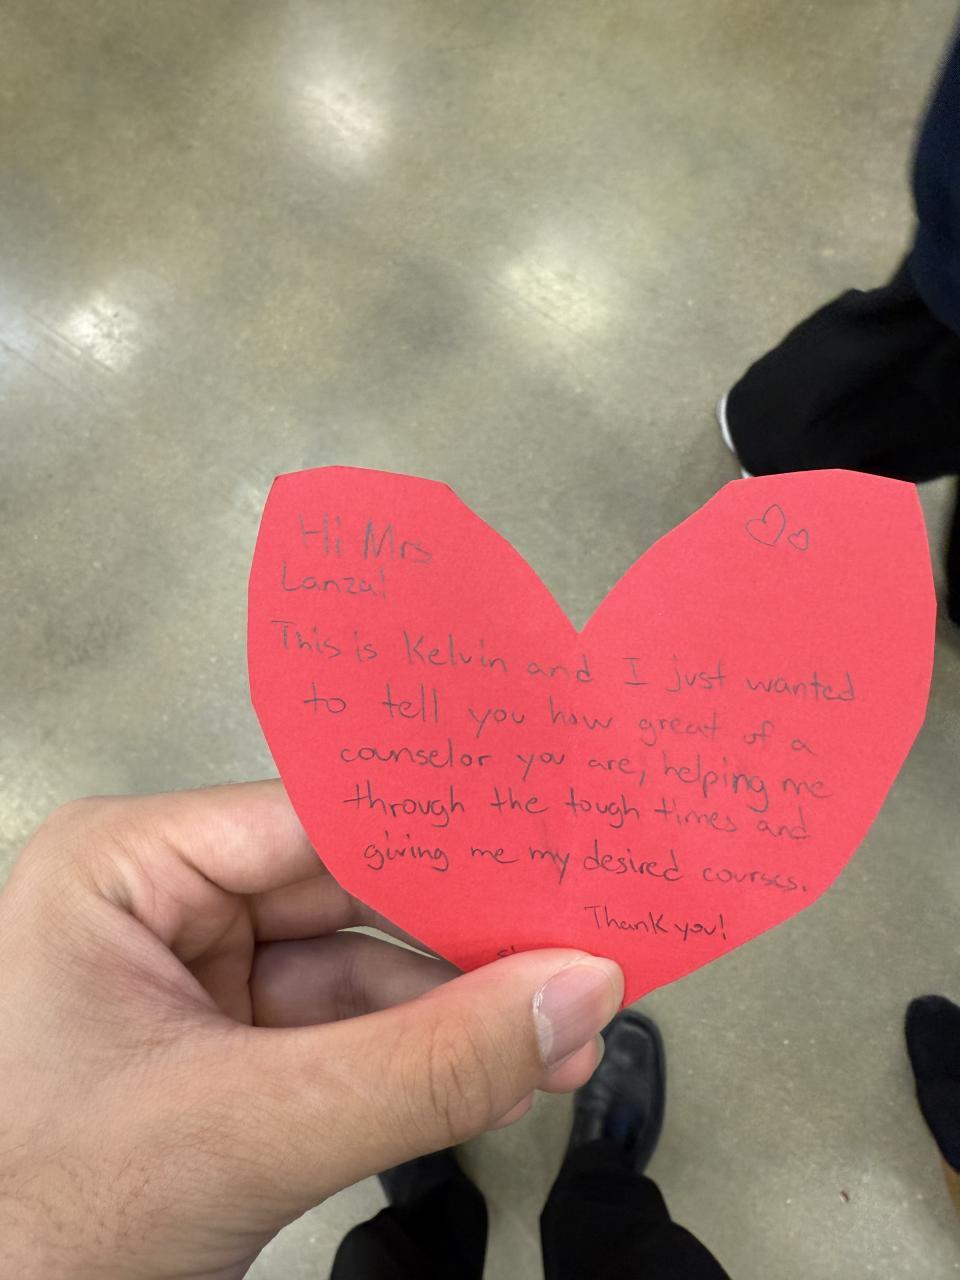 Hi Mrs
Lanza!
This is Kelvin and I just wanted
to tell you how great of a
counselor you are, helping me
through the tough times and
giving me my desired courses.
Thank you!